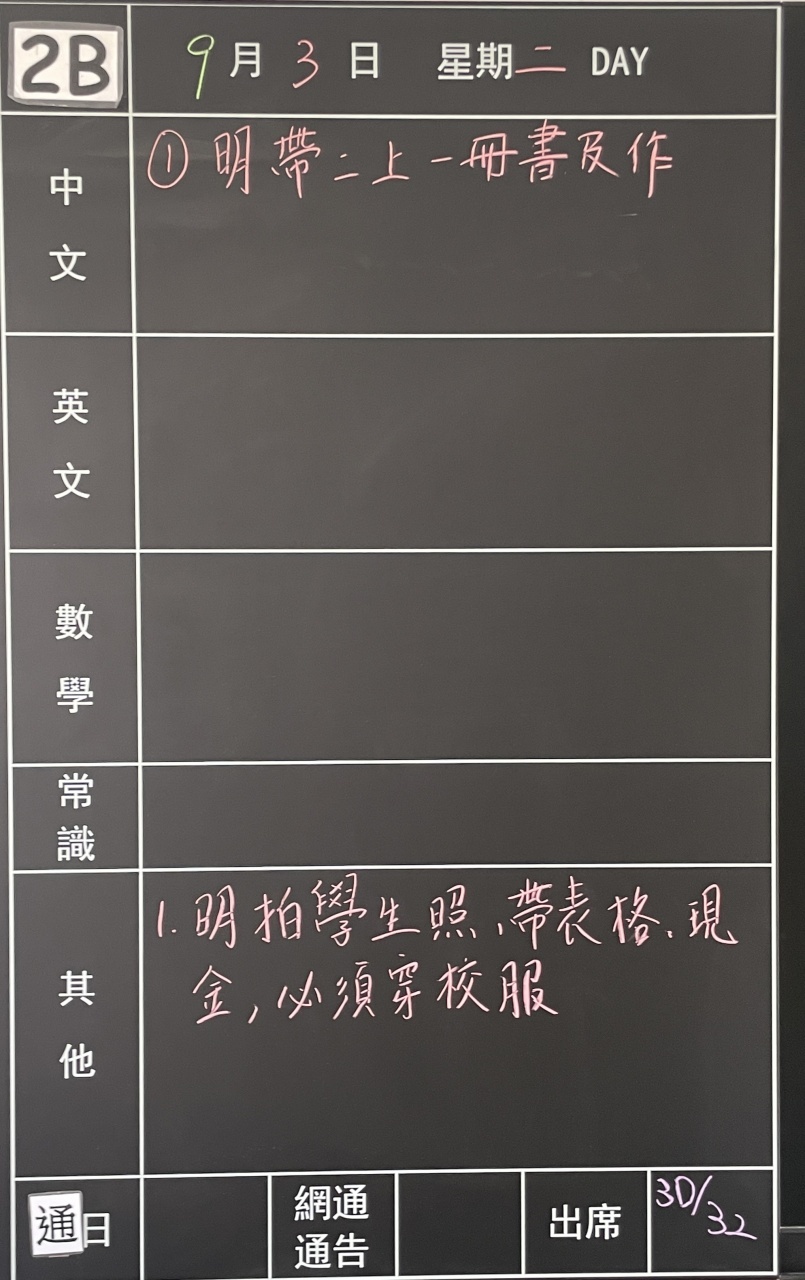 2B 9月3日 星期二 DAY
中文
①明帶二上一冊書及作
英文
數學
常識
其他
1. 明拍學生照、帶表格、現
金,必須穿校服
通日
網通
通告
出席
30/32